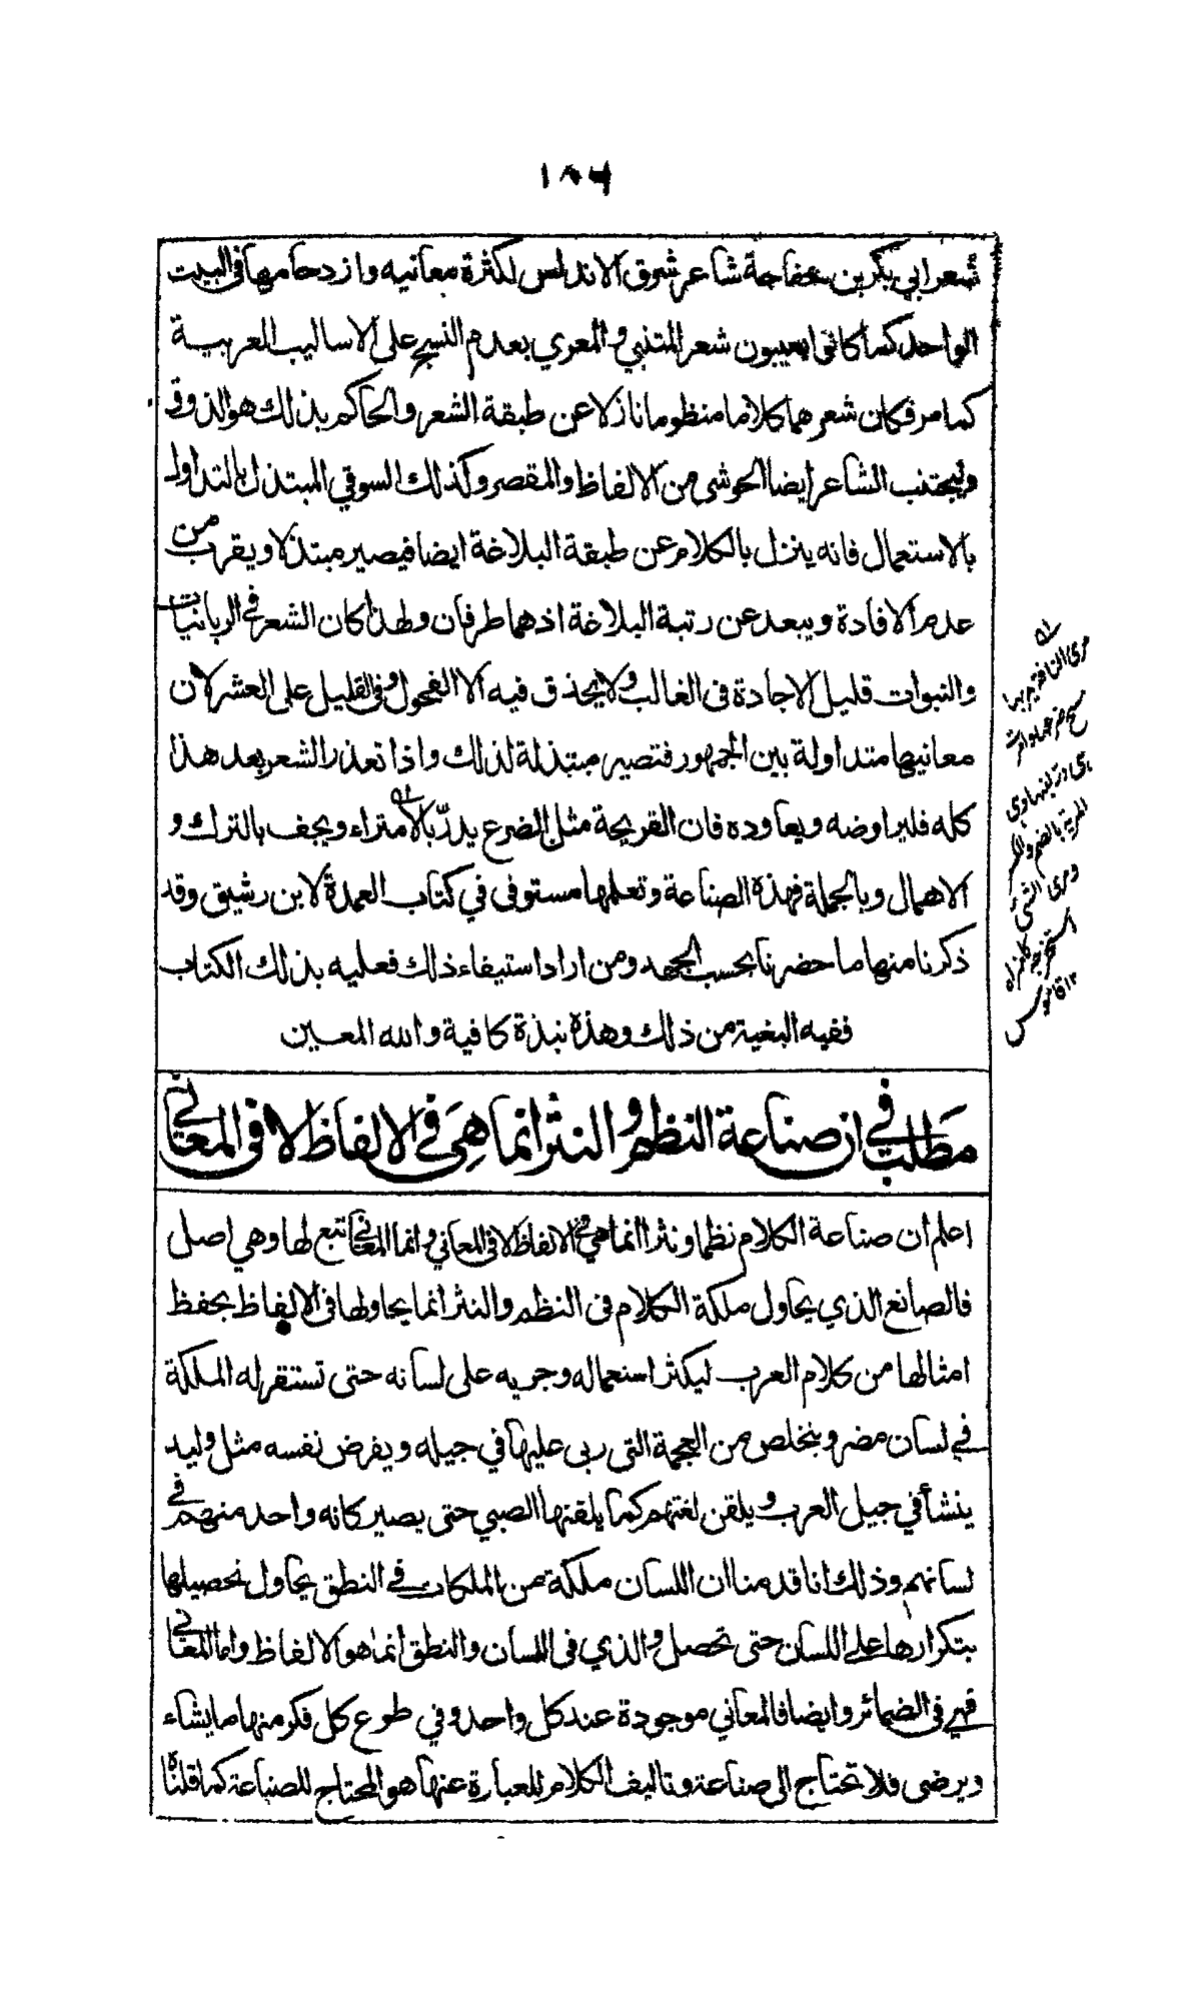 ١٨٤
شعر ابي بكر بن خفاجة شاعر شرق الاندلس لكثرة معانيه وازدحامها في البيت
الواحد كما كانوا يعيبون شعر المتنبي والمعري بعدم النسج على الاساليب العربية
كما مر فكان شعرهما كلاما منظوما نازلا عن طبقة الشعر والحاكم بذلك هو الذوق
وليجتنب الشاعر ايضا الحوشي من الالفاظ والمقصر وكذلك السوقي المبتذل بالتداول
بالاستعمال فانه ينزل بالكلام عن طبقة البلاغة ايضا فيصير مبتذلا ويقرب من
عدم الافادة ويبعد عن رتبة البلاغة اذ هما طرفان ولهذا كان الشعر في الربانيات
والنبوات قليل الاجادة في الغالب ولا يحذق فيه الا الفحول وفي القليل على العشر لان
معانيها متداولة بين الجمهور فتصير مبتذلة لذلك واذا تعذر الشعر بعد هذا
كله فليراوضه ويعاوده فان القريحة مثل الضرع يدرّ بالامتراء ويجف بالترك و
الاهمال وبالجملة فهذه الصناعة وتعلمها مستوفى في كتاب العمدة لابن رشيق وقد
ذكرنا منها ما حضرنا بحسب الجهد ومن اراد استيفاء ذلك فعليه بذلك الكتاب
ففيه البغية من ذلك وهذه نبذة كافية والله المعين
مطلب في ان صناعة النظم والنثر انما هي في الالفاظ لا في المعاني
اعلم ان صناعة الكلام نظما ونثرا انما هي في الالفاظ لا في المعاني وانما المعاني تبع لها وهي اصل
فالصانع الذي يحاول ملكة الكلام في النظم والنثر انما يحاولها في الالفاظ بحفظ
امثالها من كلام العرب ليكثر استعماله وجريه على لسانه حتى تستقر له الملكة
في لسان مضر ويتخلص من العجمة التي ربي عليها في جيله ويفرض نفسه مثل وليد
ينشأ في جيل العرب ويلقن لغتهم كما يلقنها الصبي حتى يصير كانه واحد منهم في
لسانهم وذلك انا قدمنا ان اللسان ملكة من الملكات في النطق يحاول تحصيلها
بتكرارها على اللسان حتى تحصل والذي في اللسان والنطق انما هو الالفاظ واما المعاني
فهي في الضمائر وايضا فالمعاني موجودة عند كل واحد وفي طوع كل فكر منها ما يشاء
ويرضى فلا تحتاج الى صناعة وتاليف الكلام للعبارة عنها هو المحتاج للصناعة كما قلناه
مرى الناقة
ومرى الشيء
استخرجه
١٢ قاموس